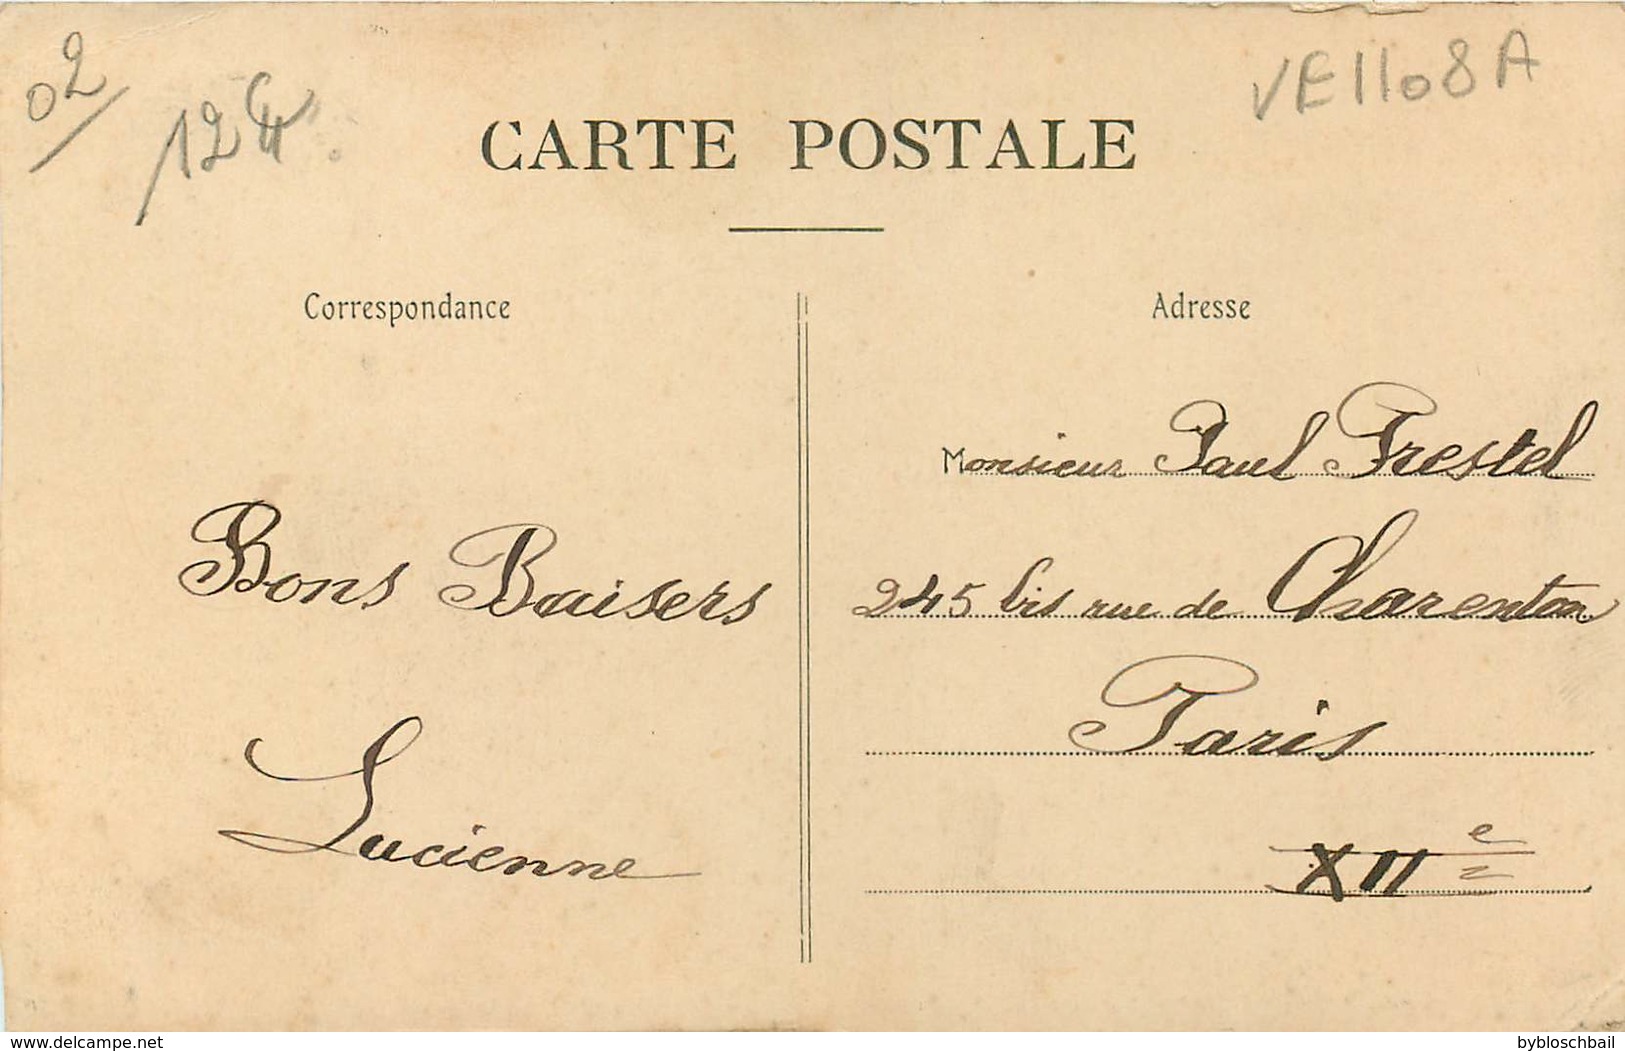 02
VE1108A
CARTE POSTALE
Correspondance
Bons Baisers
Lucienne
Adresse
Monsieur Paul Frestel
245 bis rue de Charenton
Paris
XIIe
www.delcampe.net
bybloschbail